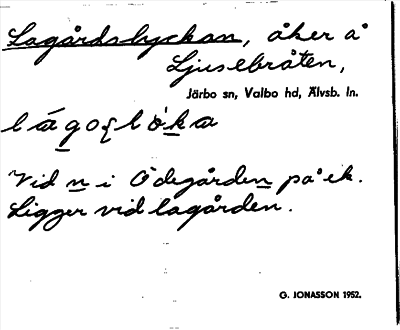 Lagårdslyckan, åker å
Ljusebråten,
Järbo sn, Valbo hd, Älvsb. ln.
Vid n i Ödegården på ek.
Ligger vid lagården.
G. JONASSON 1952.